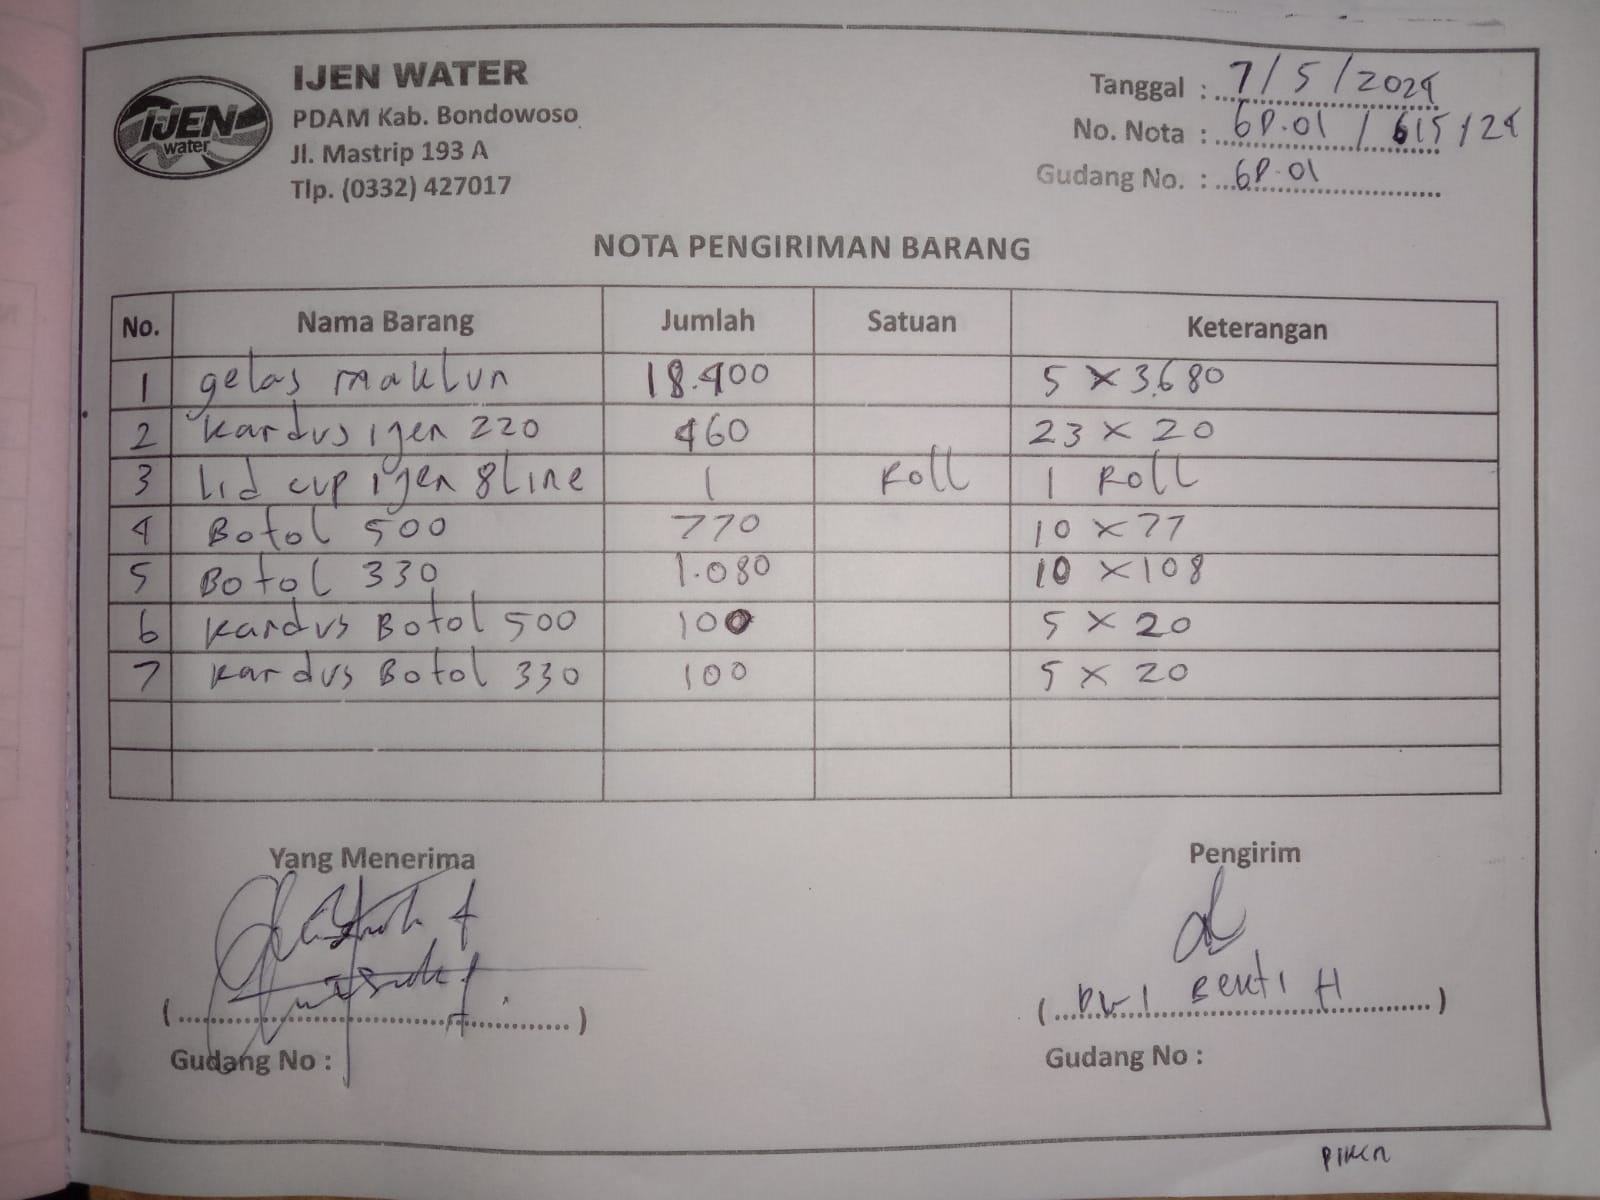 IJEN WATER
PDAM Kab. Bondowoso
Jl. Mastrip 193 A
Tlp. (0332) 427017
IJEN
water
Tanggal : 7/5/2024
No. Nota : GP.01 / 615/24
Gudang No. : GP.01
NOTA PENGIRIMAN BARANG
No. Nama Barang Jumlah Satuan Keterangan
1 gelas maklun 18.400 5 x 3.680
2 kardus ijen 220 460 23 x 20
3 Lid cup ijen 8 Line 1 Roll 1 Roll
4 Botol 500 770 10 x 77
5 Botol 330 1.080 10 x 108
6 kardus Botol 500 100 5 x 20
7 kardus Botol 330 100 5 x 20
Yang Menerima Pengirim
(...) (Dwi Bekti H)
Gudang No : Gudang No :